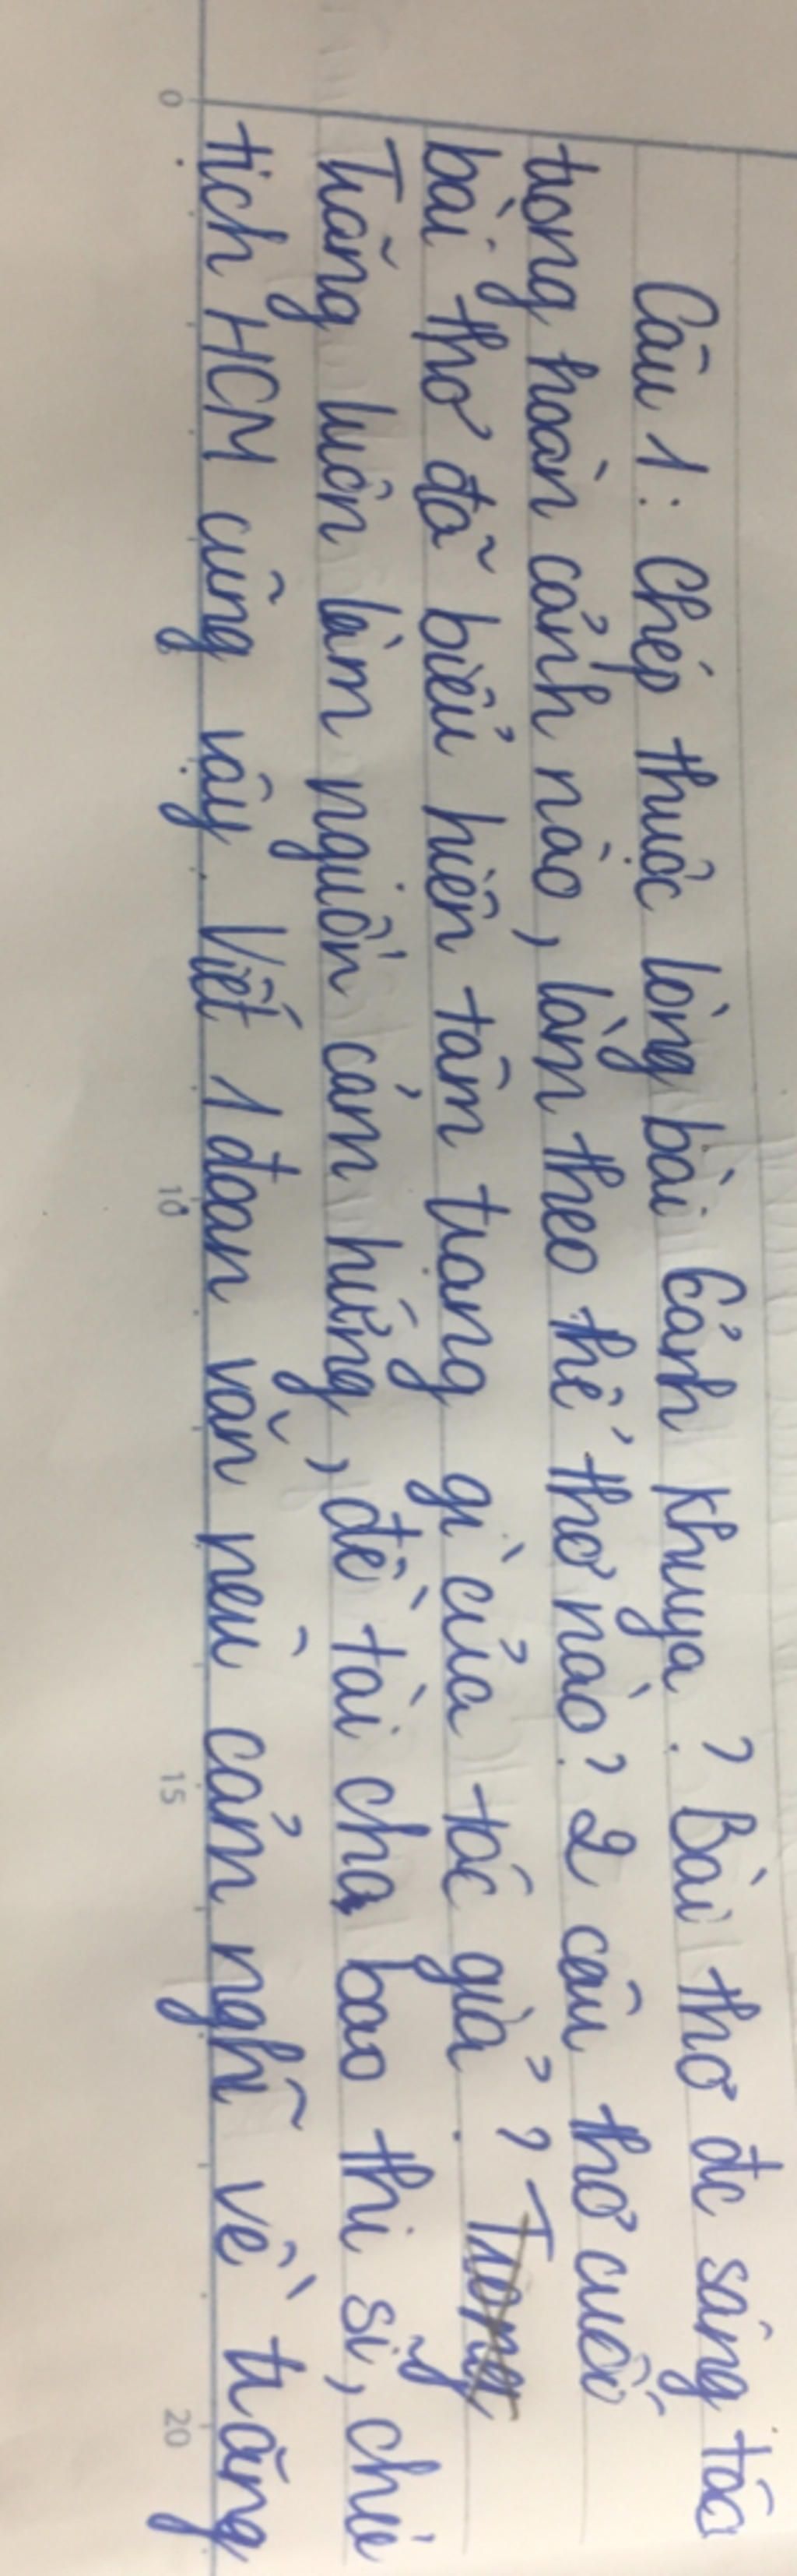 Câu 1: Chép thuộc lòng bài Cảnh khuya? Bài thơ đc sáng tác
trong hoàn cảnh nào, làm theo thể thơ nào? 2 câu thơ cuối
bài thơ đã biểu hiện tâm trạng gì của tác giả? Trong
Trăng luôn làm nguồn cảm hứng, đề tài cho bao thi sĩ, chủ
tịch HCM cũng vậy. Viết 1 đoạn văn nêu cảm nghĩ về trăng
0 10 15 20